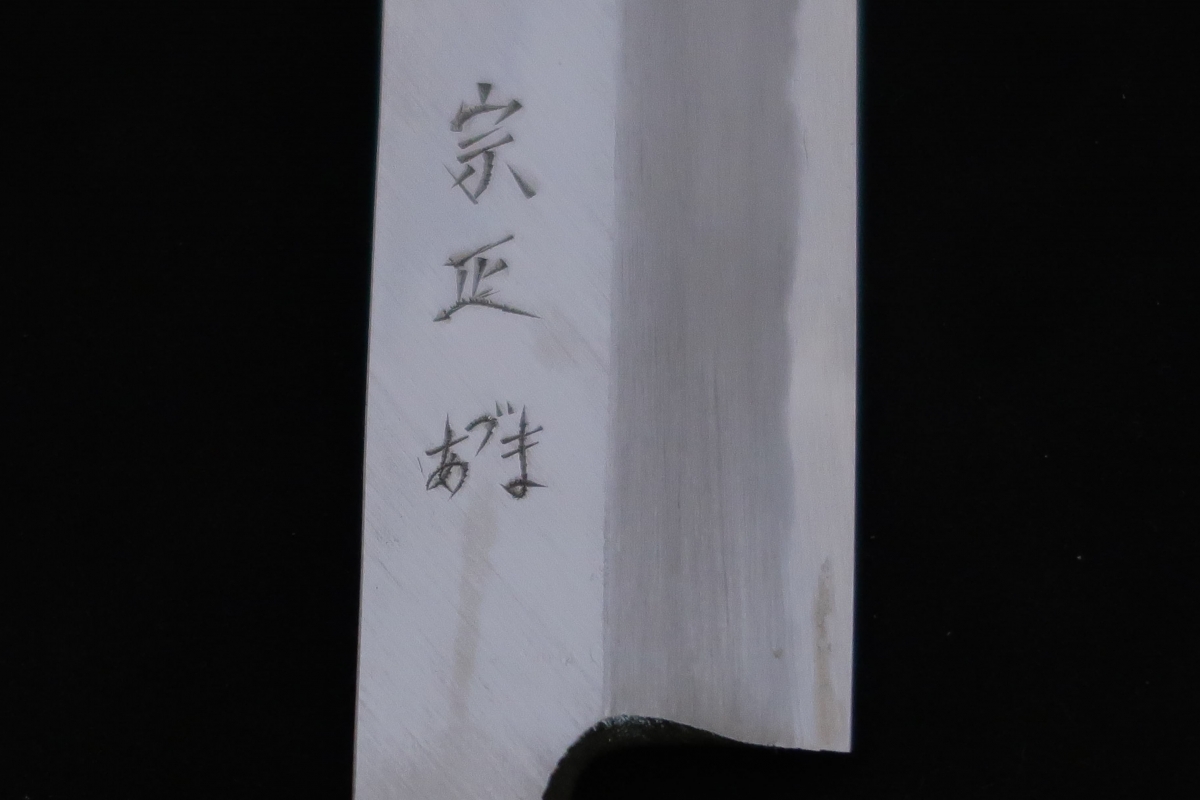 宗正
あづま